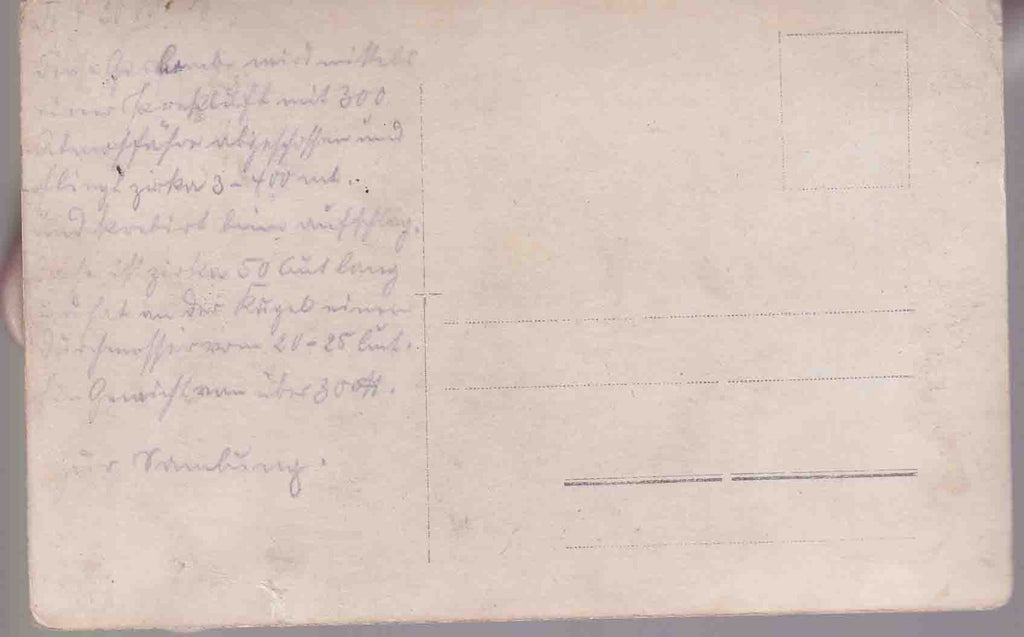 bombe wird mittels
einer Preßluft mit 300
Atmosfäre abgeschossen und
fliegt zirka 3-400 mt.
und krebirt beim aufschlag.
ist zirka 50 Cmt lang
hat an der Kugel einen
Durchmesser vom 20-25 Cmt.
Gewicht von über 300 ℔.
Zur Samlung.